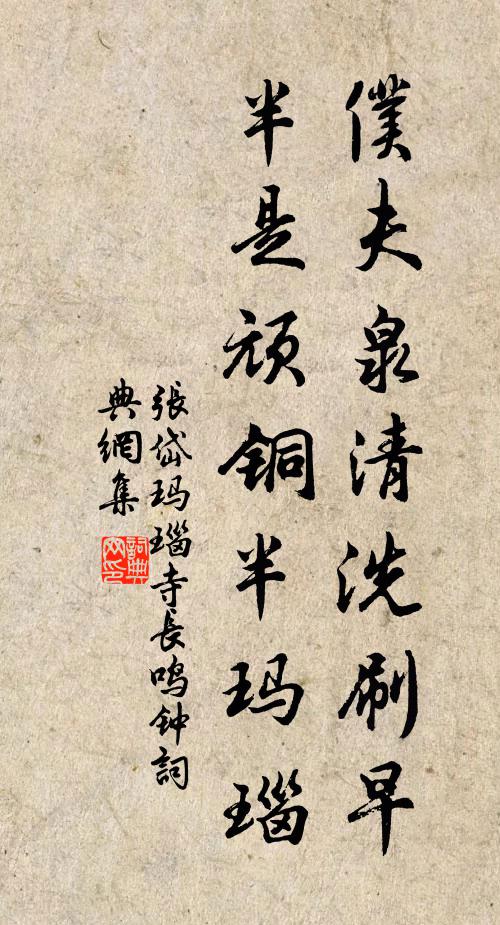 僕夫泉清洗刷早
半是頑銅半玛瑙
張岱玛瑙寺長鸣钟詞
典網集
詞典
网印